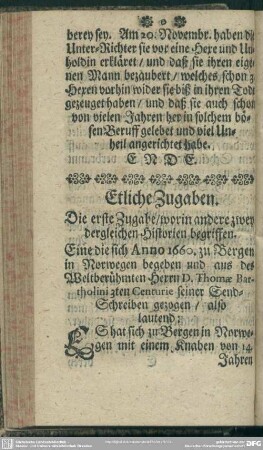 berey sey. Am 20. Novembr. haben die
Unter-Richter sie vor eine Hexe und Un-
holdin erkläret / und daß sie ihren eige-
nen Mann bezaubert / welches schon 2
Hexen vorhin wider sie biß in ihren Tod
gezeuget haben / und daß sie auch schon
von vielen Jahren her in solchem bö-
sen Beruff gelebet und viel Un-
heil angerichtet habe.
E N D E.
Etliche Zugaben.
Die erste Zugabe / worin andere zwey
dergleichen Historien begriffen.
Eine die sich Anno 1660. zu Bergen
in Norwegen begeben und aus des
Weltberühmten Herrn D. Thomæ Bar-
tholini 3ten Centurie seiner Send-
Schreiben gezogen / also
lautend:
ES hat sich zu Bergen in Norwe-
gen mit einem Knaben von 14.
Jahren